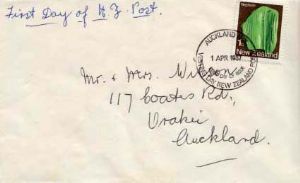 First Day of N.Z. Post.
Nephrite
1c
New Zealand
AUCKLAND
1 APR 1987
NEW ZEALAND
Mr. & Mrs.
117 Coates Rd,
Orakei
Auckland.